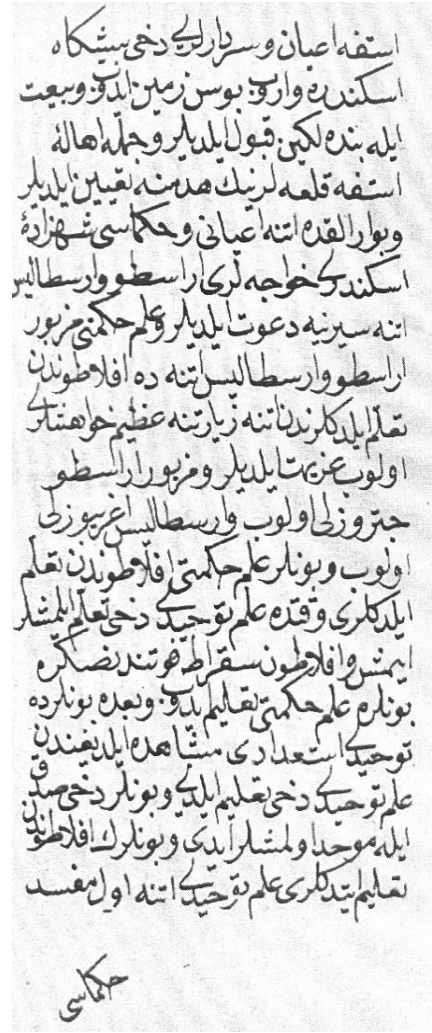 استفه اعيان و سردارلرى دخى پيشكاه
اسكندره واروب بوس زمين ايدوب و بيعت
ايله بنده لكين قبول ايلديلر و جمله اهالئ
استفه قلعه لرينك هدمنه تعيين ايلديلر
و بو ارالقده اتنه اعيانى و حكماسى شهزادۀ
اسكندرى خواجه لرى اراسطو و ارسطاليس
اتنه سيرنيه دعوت ايلديلر و علم حكمتى مزبور
اراسطو و ارسطاليس اتنه ده افلاطوندن
تعلم ايلدكلرندن اتنه زيارتنه عظيم خواهشلرى
اولوب عزيمت ايلديلر و مزبور اراسطو
جتروزلى اولوب و ارسطاليس اغريبوزلى
اولوب و بونلر علم حكمتى افلاطوندن تعلم
ايلدكلرى وقتده علم توحيدى دخى تعلم ايلمشلر
ايمش و افلاطون سقراط فوتندنصكره
بونلره علم حكمتى تعليم ايدوب و بعده بونلرده
توحيدى استعدادى مشاهده ايلديغندن
علم توحيدى دخى تعليم ايلدى و بونلر دخى صدق
ايله موحد اولمشلر ايدى و بونلرك افلاطوندن
تعليم ايتدكلرى علم توحيدى اتنه اول مفسد
حكماسى